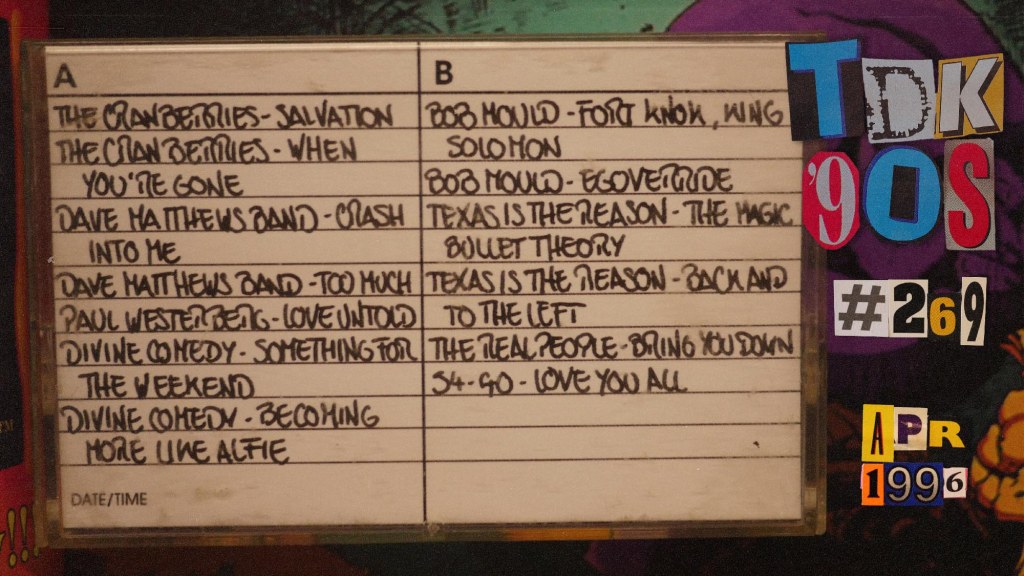 A
THE CRANBERRIES - SALVATION
THE CRANBERRIES - WHEN
YOU'RE GONE
DAVE MATTHEWS BAND - CRASH
INTO ME
DAVE MATTHEWS BAND - TOO MUCH
PAUL WESTERBERG - LOVE UNTOLD
DIVINE COMEDY - SOMETHING FOR
THE WEEKEND
DIVINE COMEDY - BECOMING
MORE LIKE ALFIE
DATE/TIME
B
BOB MOULD - FORT KNOX, KING
SOLOMON
BOB MOULD - EGOVERRIDE
TEXAS IS THE REASON - THE MAGIC
BULLET THEORY
TEXAS IS THE REASON - BACK AND
TO THE LEFT
THE REAL PEOPLE - BRING YOU DOWN
S4-GO - LOVE YOU ALL
TDK
'90S
#269
APR
1996
!!!